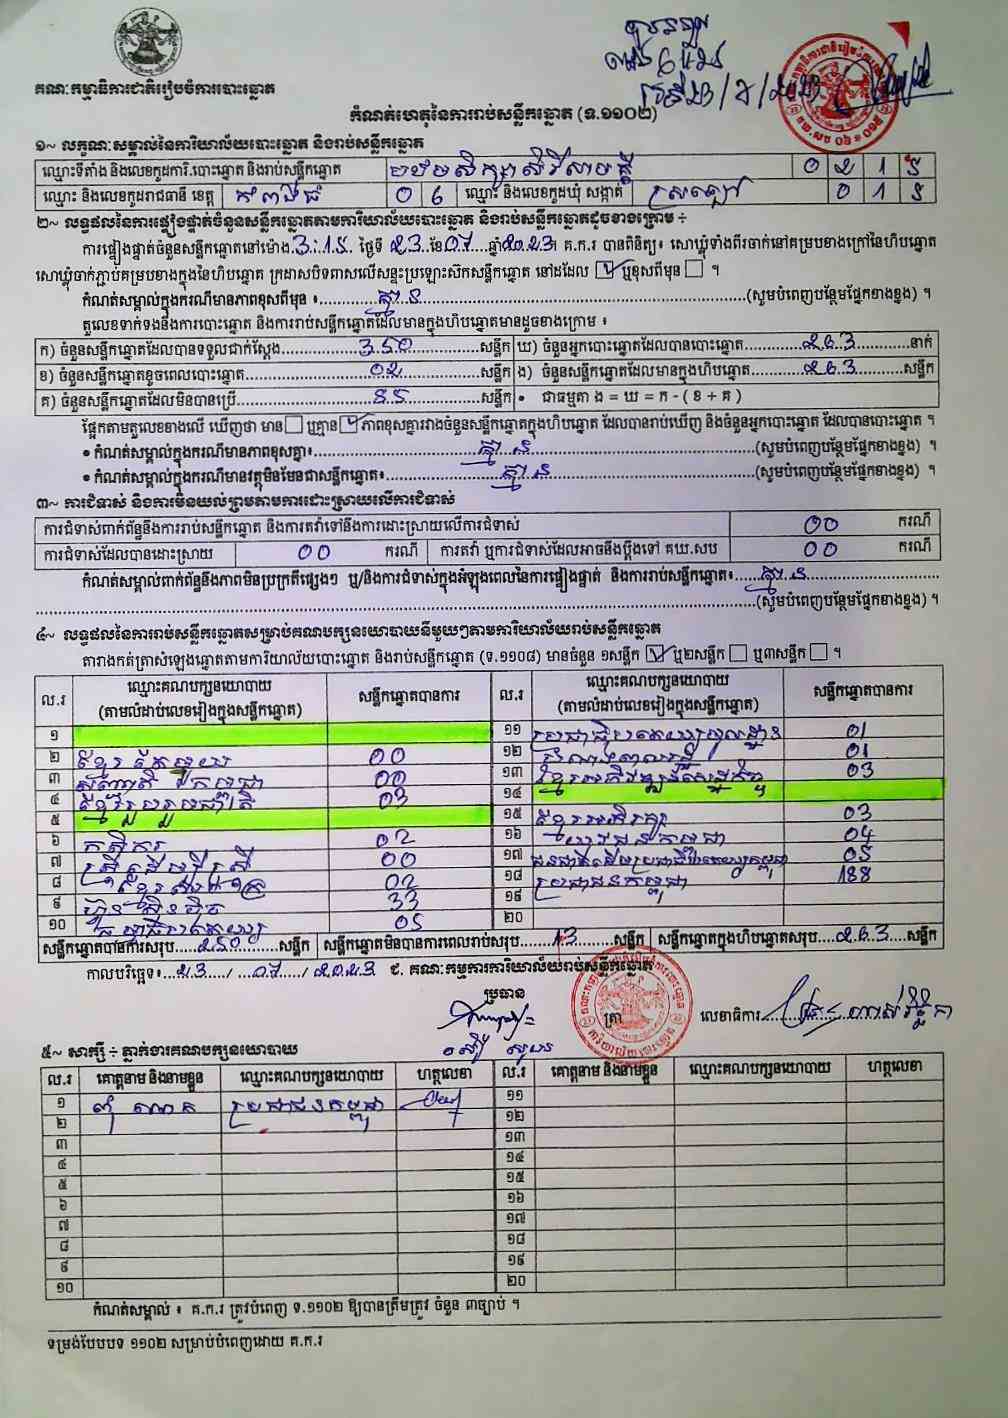 គណៈកម្មាធិការជាតិរៀបចំការបោះឆ្នោត
កំណត់ហេតុនៃការរាប់សន្លឹកឆ្នោត (ទ.១១០២)
១~ លក្ខណៈសម្គាល់នៃការិយាល័យបោះឆ្នោត និងរាប់សន្លឹកឆ្នោត
ឈ្មោះទីតាំង និងលេខកូដការិ.បោះឆ្នោត និងរាប់សន្លឹកឆ្នោត
ឈ្មោះ និងលេខកូដរាជធានី ខេត្ត កំពង់ធំ 0 6 ឈ្មោះ និងលេខកូដឃុំ សង្កាត់
២~ លទ្ធផលនៃការផ្ទៀងផ្ទាត់ចំនួនសន្លឹកឆ្នោតតាមការិយាល័យបោះឆ្នោត និងរាប់សន្លឹកឆ្នោតដូចខាងក្រោម ÷
ការផ្ទៀងផ្ទាត់ចំនួនសន្លឹកឆ្នោតនៅម៉ោង 3:15 ថ្ងៃទី 23 ខែ 07 ឆ្នាំ 2023 ។ គ.ក.រ បានពិនិត្យ៖ សោឃ្លុំទាំងពីរចាក់នៅគម្របខាងក្រៅនៃហិបឆ្នោត
សោឃ្លុំចាក់ភ្ជាប់គម្របខាងក្នុងនៃហិបឆ្នោត ក្រដាសបិទពាសលើសន្ទះប្រឡោះស៊កសន្លឹកឆ្នោត នៅដដែល ☑ ឬខុសពីមុន ☐ ។
កំណត់សម្គាល់ក្នុងករណីមានភាពខុសពីមុន ៖ គ្មាន (សូមបំពេញបន្ថែមផ្នែកខាងខ្នង) ។
តួលេខទាក់ទងនឹងការបោះឆ្នោត និងការរាប់សន្លឹកឆ្នោតដែលមានក្នុងហិបឆ្នោតមានដូចខាងក្រោម ៖
ក) ចំនួនសន្លឹកឆ្នោតដែលបានទទួលជាក់ស្តែង 350 សន្លឹក ឃ) ចំនួនអ្នកបោះឆ្នោតដែលបានបោះឆ្នោត 263 នាក់
ខ) ចំនួនសន្លឹកឆ្នោតខូចពេលបោះឆ្នោត 02 សន្លឹក ង) ចំនួនសន្លឹកឆ្នោតដែលមានក្នុងហិបឆ្នោត 263 សន្លឹក
គ) ចំនួនសន្លឹកឆ្នោតដែលមិនបានប្រើ សន្លឹក • ជាធម្មតា ង = ឃ = ក - ( ខ + គ )
ផ្អែកតាមតួលេខខាងលើ ឃើញថា មាន ☐ ឬគ្មាន ☑ ភាពខុសគ្នារវាងចំនួនសន្លឹកឆ្នោតក្នុងហិបឆ្នោត ដែលបានរាប់ឃើញ និងចំនួនអ្នកបោះឆ្នោត ដែលបានបោះឆ្នោត ។
• កំណត់សម្គាល់ក្នុងករណីមានភាពខុសគ្នា៖ គ្មាន (សូមបំពេញបន្ថែមផ្នែកខាងខ្នង) ។
• កំណត់សម្គាល់ក្នុងករណីមានវត្ថុមិនមែនជាសន្លឹកឆ្នោត៖ គ្មាន (សូមបំពេញបន្ថែមផ្នែកខាងខ្នង) ។
៣~ ការជំទាស់ និងការមិនយល់ព្រមតាមការដោះស្រាយលើការជំទាស់
ការជំទាស់ពាក់ព័ន្ធនឹងការរាប់សន្លឹកឆ្នោត និងការតវ៉ាទៅនឹងការដោះស្រាយលើការជំទាស់ 00 ករណី
ការជំទាស់ដែលបានដោះស្រាយ 00 ករណី ការតវ៉ា ឬការជំទាស់ដែលអាចនឹងប្តឹងទៅ គឃ.សប 00 ករណី
កំណត់សម្គាល់ពាក់ព័ន្ធនឹងភាពមិនប្រក្រតីផ្សេងៗ ឬ/និងការជំទាស់ក្នុងអំឡុងពេលនៃការផ្ទៀងផ្ទាត់ និងការរាប់សន្លឹកឆ្នោត៖ គ្មាន
(សូមបំពេញបន្ថែមផ្នែកខាងខ្នង) ។
៤~ លទ្ធផលនៃការរាប់សន្លឹកឆ្នោតសម្រាប់គណបក្សនយោបាយនីមួយៗតាមការិយាល័យរាប់សន្លឹកឆ្នោត
តារាងកត់ត្រាសំឡេងឆ្នោតតាមការិយាល័យបោះឆ្នោត និងរាប់សន្លឹកឆ្នោត (ទ.១១០៨) មានចំនួន ១សន្លឹក ☑ ឬ២សន្លឹក ☐ ឬ៣សន្លឹក ☐ ។
ល.រ ឈ្មោះគណបក្សនយោបាយ (តាមលំដាប់លេខរៀងក្នុងសន្លឹកឆ្នោត) សន្លឹកឆ្នោតបានការ ល.រ ឈ្មោះគណបក្សនយោបាយ (តាមលំដាប់លេខរៀងក្នុងសន្លឹកឆ្នោត) សន្លឹកឆ្នោតបានការ
១
២ ខ្មែរ 00
៣ 00
៤ ខ្មែររួបរួមជាតិ 03
៥
៦ កសិករ 02
៧ 00
៨ 02
៩ ហ៊្វុនស៊ិនប៉ិច 33
១០ 05
១១ 01
១២ 01
១៣ 03
១៤
១៥ 03
១៦ 04
១៧ 05
១៨ ប្រជាជនកម្ពុជា 188
១៩
២០
សន្លឹកឆ្នោតបានការសរុប 250 សន្លឹក សន្លឹកឆ្នោតមិនបានការពេលរាប់សរុប 13 សន្លឹក សន្លឹកឆ្នោតក្នុងហិបឆ្នោតសរុប 263 សន្លឹក
កាលបរិច្ឆេទ៖ 23 / 07 / 2023 ជ. គណៈកម្មការការិយាល័យរាប់សន្លឹកឆ្នោត
ប្រធាន
ត្រា លេខាធិការ
៥~ សាក្សី ÷ ភ្នាក់ងារគណបក្សនយោបាយ
ល.រ គោត្តនាម និងនាមខ្លួន ឈ្មោះគណបក្សនយោបាយ ហត្ថលេខា ល.រ គោត្តនាម និងនាមខ្លួន ឈ្មោះគណបក្សនយោបាយ ហត្ថលេខា
១ ប្រជាជនកម្ពុជា ១១
២ ១២
៣ ១៣
៤ ១៤
៥ ១៥
៦ ១៦
៧ ១៧
៨ ១៨
៩ ១៩
១០ ២០
កំណត់សម្គាល់ ៖ គ.ក.រ ត្រូវបំពេញ ទ.១១០២ ឱ្យបានត្រឹមត្រូវ ចំនួន ៣ច្បាប់ ។
ទម្រង់បែបបទ ១១០២ សម្រាប់បំពេញដោយ គ.ក.រ